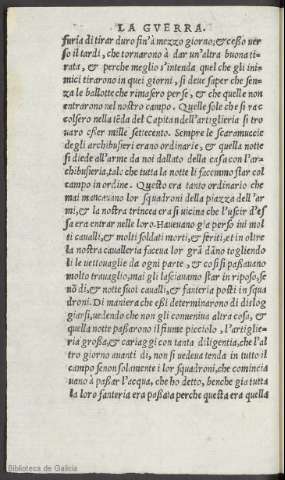 LA GVERRA.
furia di tirar duro fin'à mezzo giorno; & cessò ver
so il tardi, che tornarono à dar un'altra buona ti-
rata, & perche meglio s'intenda quel che gli ini-
mici tirarono in quei giorni, si deue saper che sen-
za le ballotte che rimasero perse, & che quelle non
entrarono nel nostro campo. Quelle sole che si rac
colsero nella tēda del Capitan dell'artiglieria si tro
uarò esser mille settecento. Sempre le scaramuccie
degli archibusieri erano ordinarie, & quella notte
si diede all'arme da noi dallato della casa con l'ar-
chibusieria, talche tutta la notte li facemmo star col
campo in ordine. Questo era tanto ordinario che
mai mancauano lor squadroni della piazza dell'ar
mi, & la nostra trincea era sì uicina che l'uscir d'es
sa era entrar nelle loro. Haueuano gia perso iui mol
ti caualli, & molti soldati morti, & feriti, et in oltre
la nostra caualleria faceua lor grā dāno togliendo
li le uettouaglie da ogni parte, & così si passauano
molto trauaglio, mai gli lasciauamo star in riposo, se
nō dì, & notte suoi caualli, & fanteria posti in squa
droni. Di maniera che essi determinarono di dislog
giarsi, uedendo che non gli conueniua altra cosa, &
quella notte passarono il fiume picciolo, l'artiglie-
ria grossa, & cariaggi con tanta diligentia, che l'al
tro giorno auanti dì, non si uedeua tenda in tutto il
campo senon solamente i lor squadroni, che comincia
uano à passar l'acqua, che ho detto, benche gia tutta
la loro fanteria era passata perche questa era quella
Biblioteca de Galicia